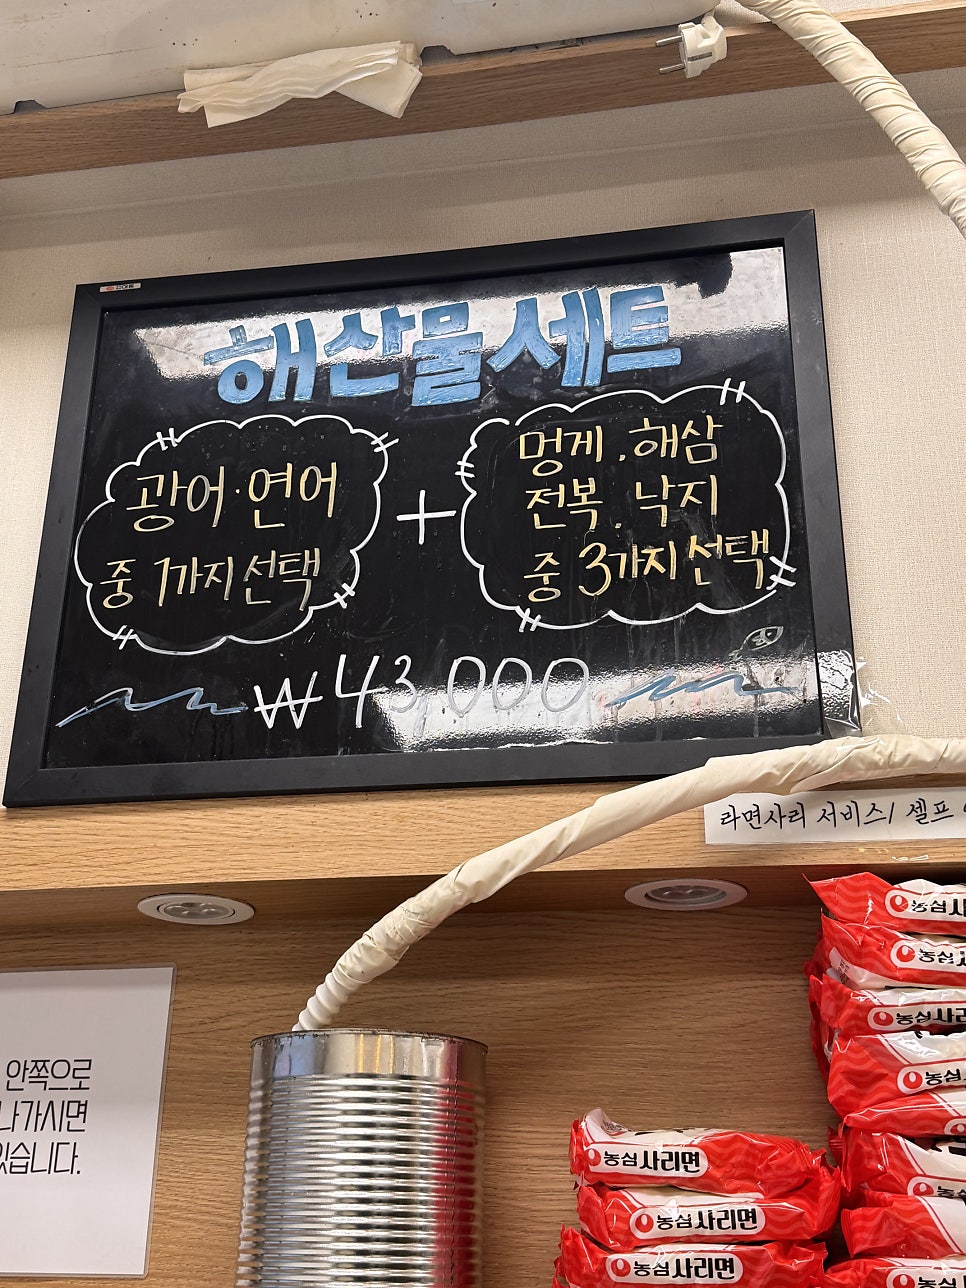 해산물세트
광어·연어
중 1가지 선택
+
멍게.해삼
전복.낙지
중 3가지 선택
₩43,000
라면사리 서비스/ 셀프
안쪽으로
나가시면
있습니다.
농심
농심
농심사
농심
농심
농심사리면
농심사리면
농심사리면